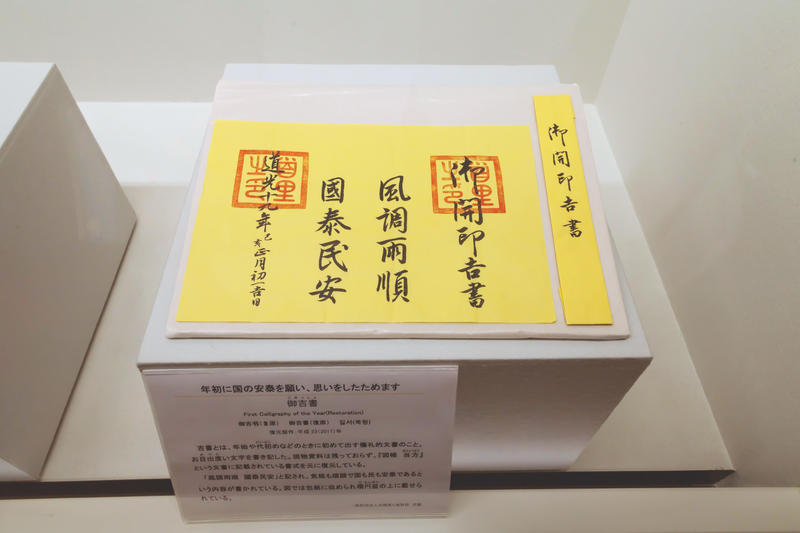 御開印吉書
御開印吉書
風調雨順
國泰民安
道光十九年己亥正月初一吉日
首里之印
首里之印
年初に国の安泰を願い、思いをしたためます
御吉書
First Calligraphy of the Year(Restoration)
御吉书(复原) 御吉書(復原) 길서(복원)
復元製作:平成 23(2011)年
吉書とは、年始や代初めなどのときに初めて出す儀礼的文書のこと。
お目出度い文字を書き記した。現物資料は残っておらず、『図帳 当方』
という文書に記載されている書式を元に復元している。
「風調雨順 國泰民安」と記され、気候も順調で国も民も安泰であると
いう内容が書かれている。図では包紙に収められ楕円盆の上に載せら
れている。
一般財団法人沖縄美ら島財団 所蔵